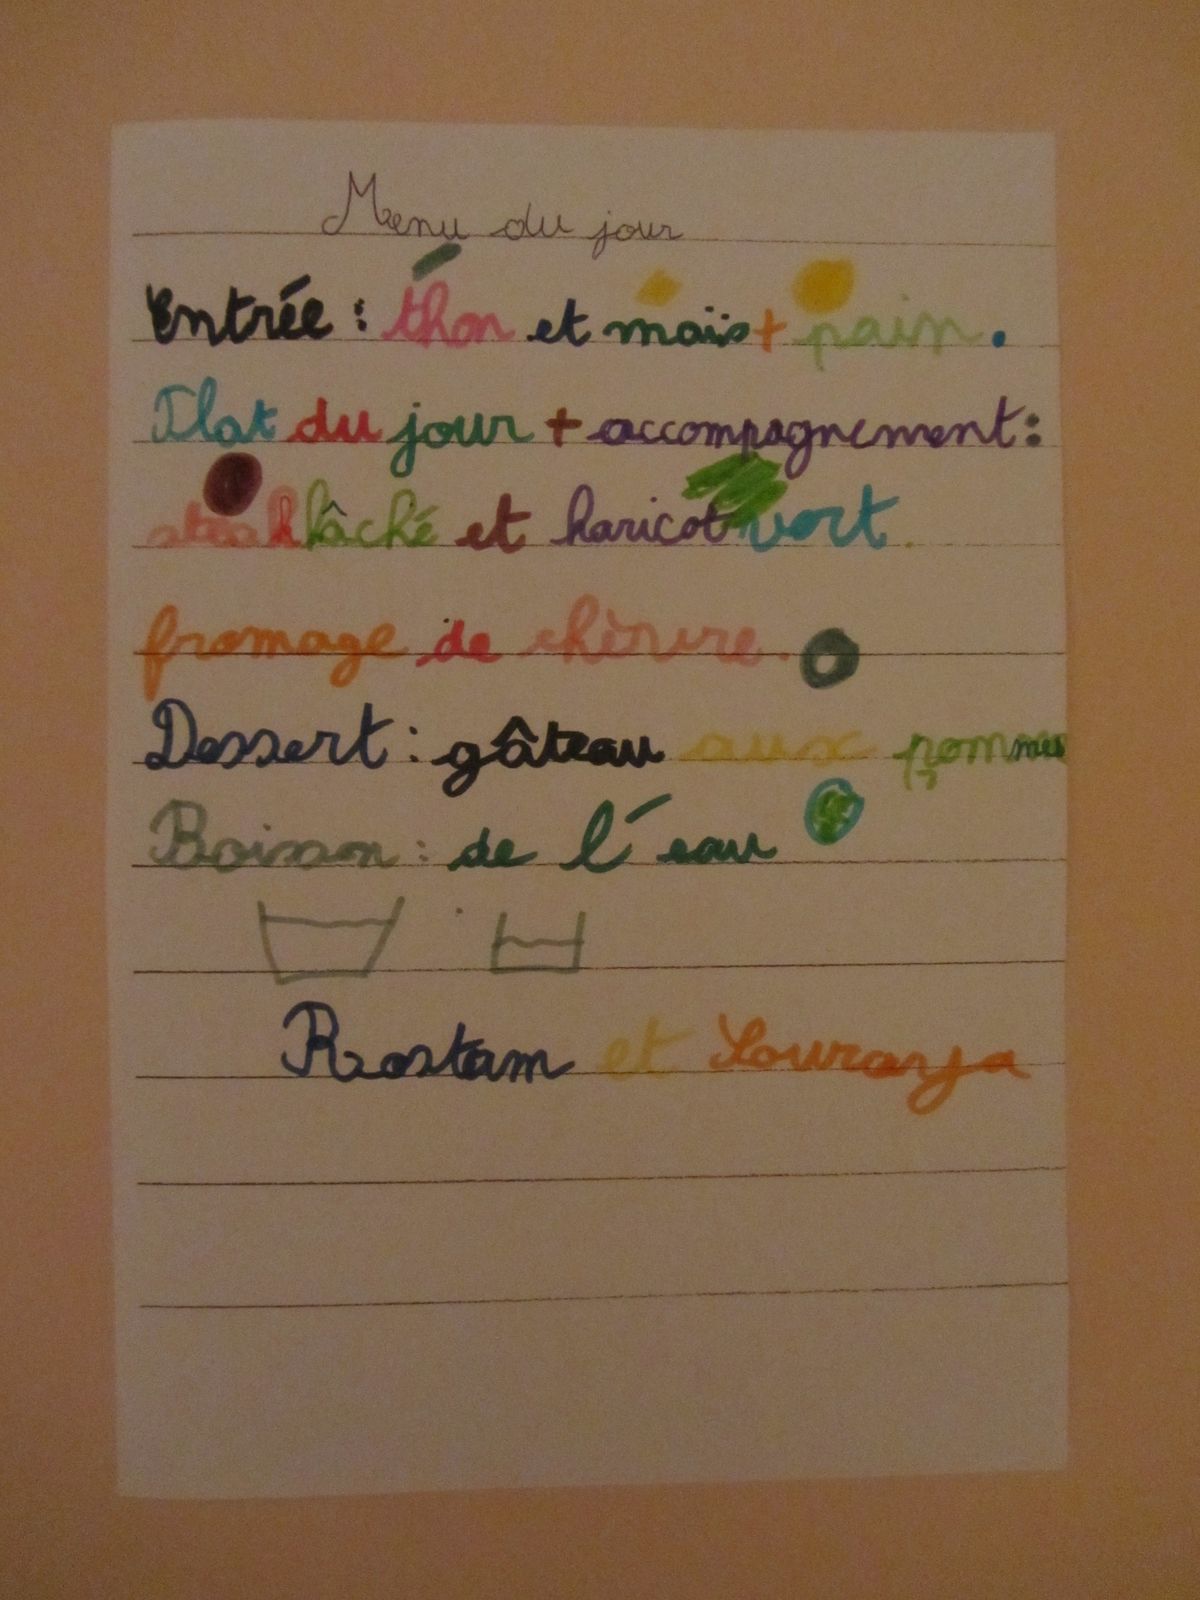 Menu du jour
Entrée : thon et maïs + pain.
Plat du jour + accompagnement :
steak hâché et haricot vert.
fromage de chèvre.
Dessert : gâteau aux pommes
Boisson : de l'eau
Rostam et